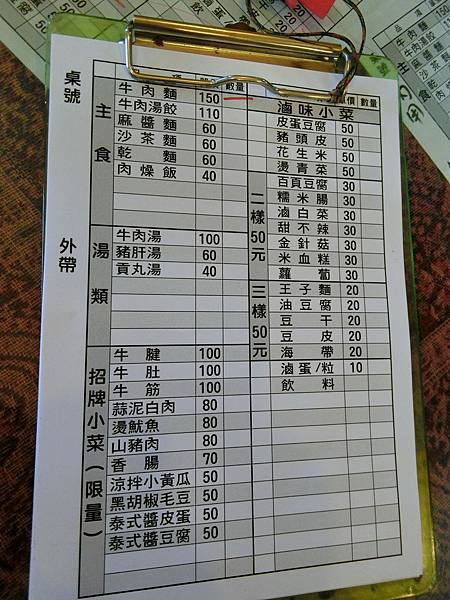 桌號
外帶
主食
數量
牛肉麵 150
牛肉湯餃 110
麻醬麵 60
沙茶麵 60
乾麵 60
肉燥飯 40
湯類
牛肉湯 100
豬肝湯 60
貢丸湯 40
招牌小菜(限量)
牛腱 100
牛肚 100
牛筋 100
蒜泥白肉 80
燙魷魚 80
山豬肉 80
香腸 70
涼拌小黃瓜 50
黑胡椒毛豆 50
泰式醬皮蛋 50
泰式醬豆腐 50
價 數量
滷味小菜
皮蛋豆腐 50
豬頭皮 50
花生米 50
燙青菜 50
二樣50元
百頁豆腐 30
糯米腸 30
滷白菜 30
甜不辣 30
金針菇 30
米血糕 30
蘿蔔 30
三樣50元
王子麵 20
油豆腐 20
豆干 20
豆皮 20
海帶 20
滷蛋/粒 10
飲料